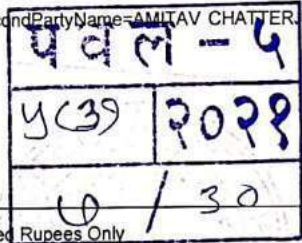 condPartyName=AMITAV CHATTER
पवल - ५
५८३९ २०२१
७ / ३०
ed Rupees Only